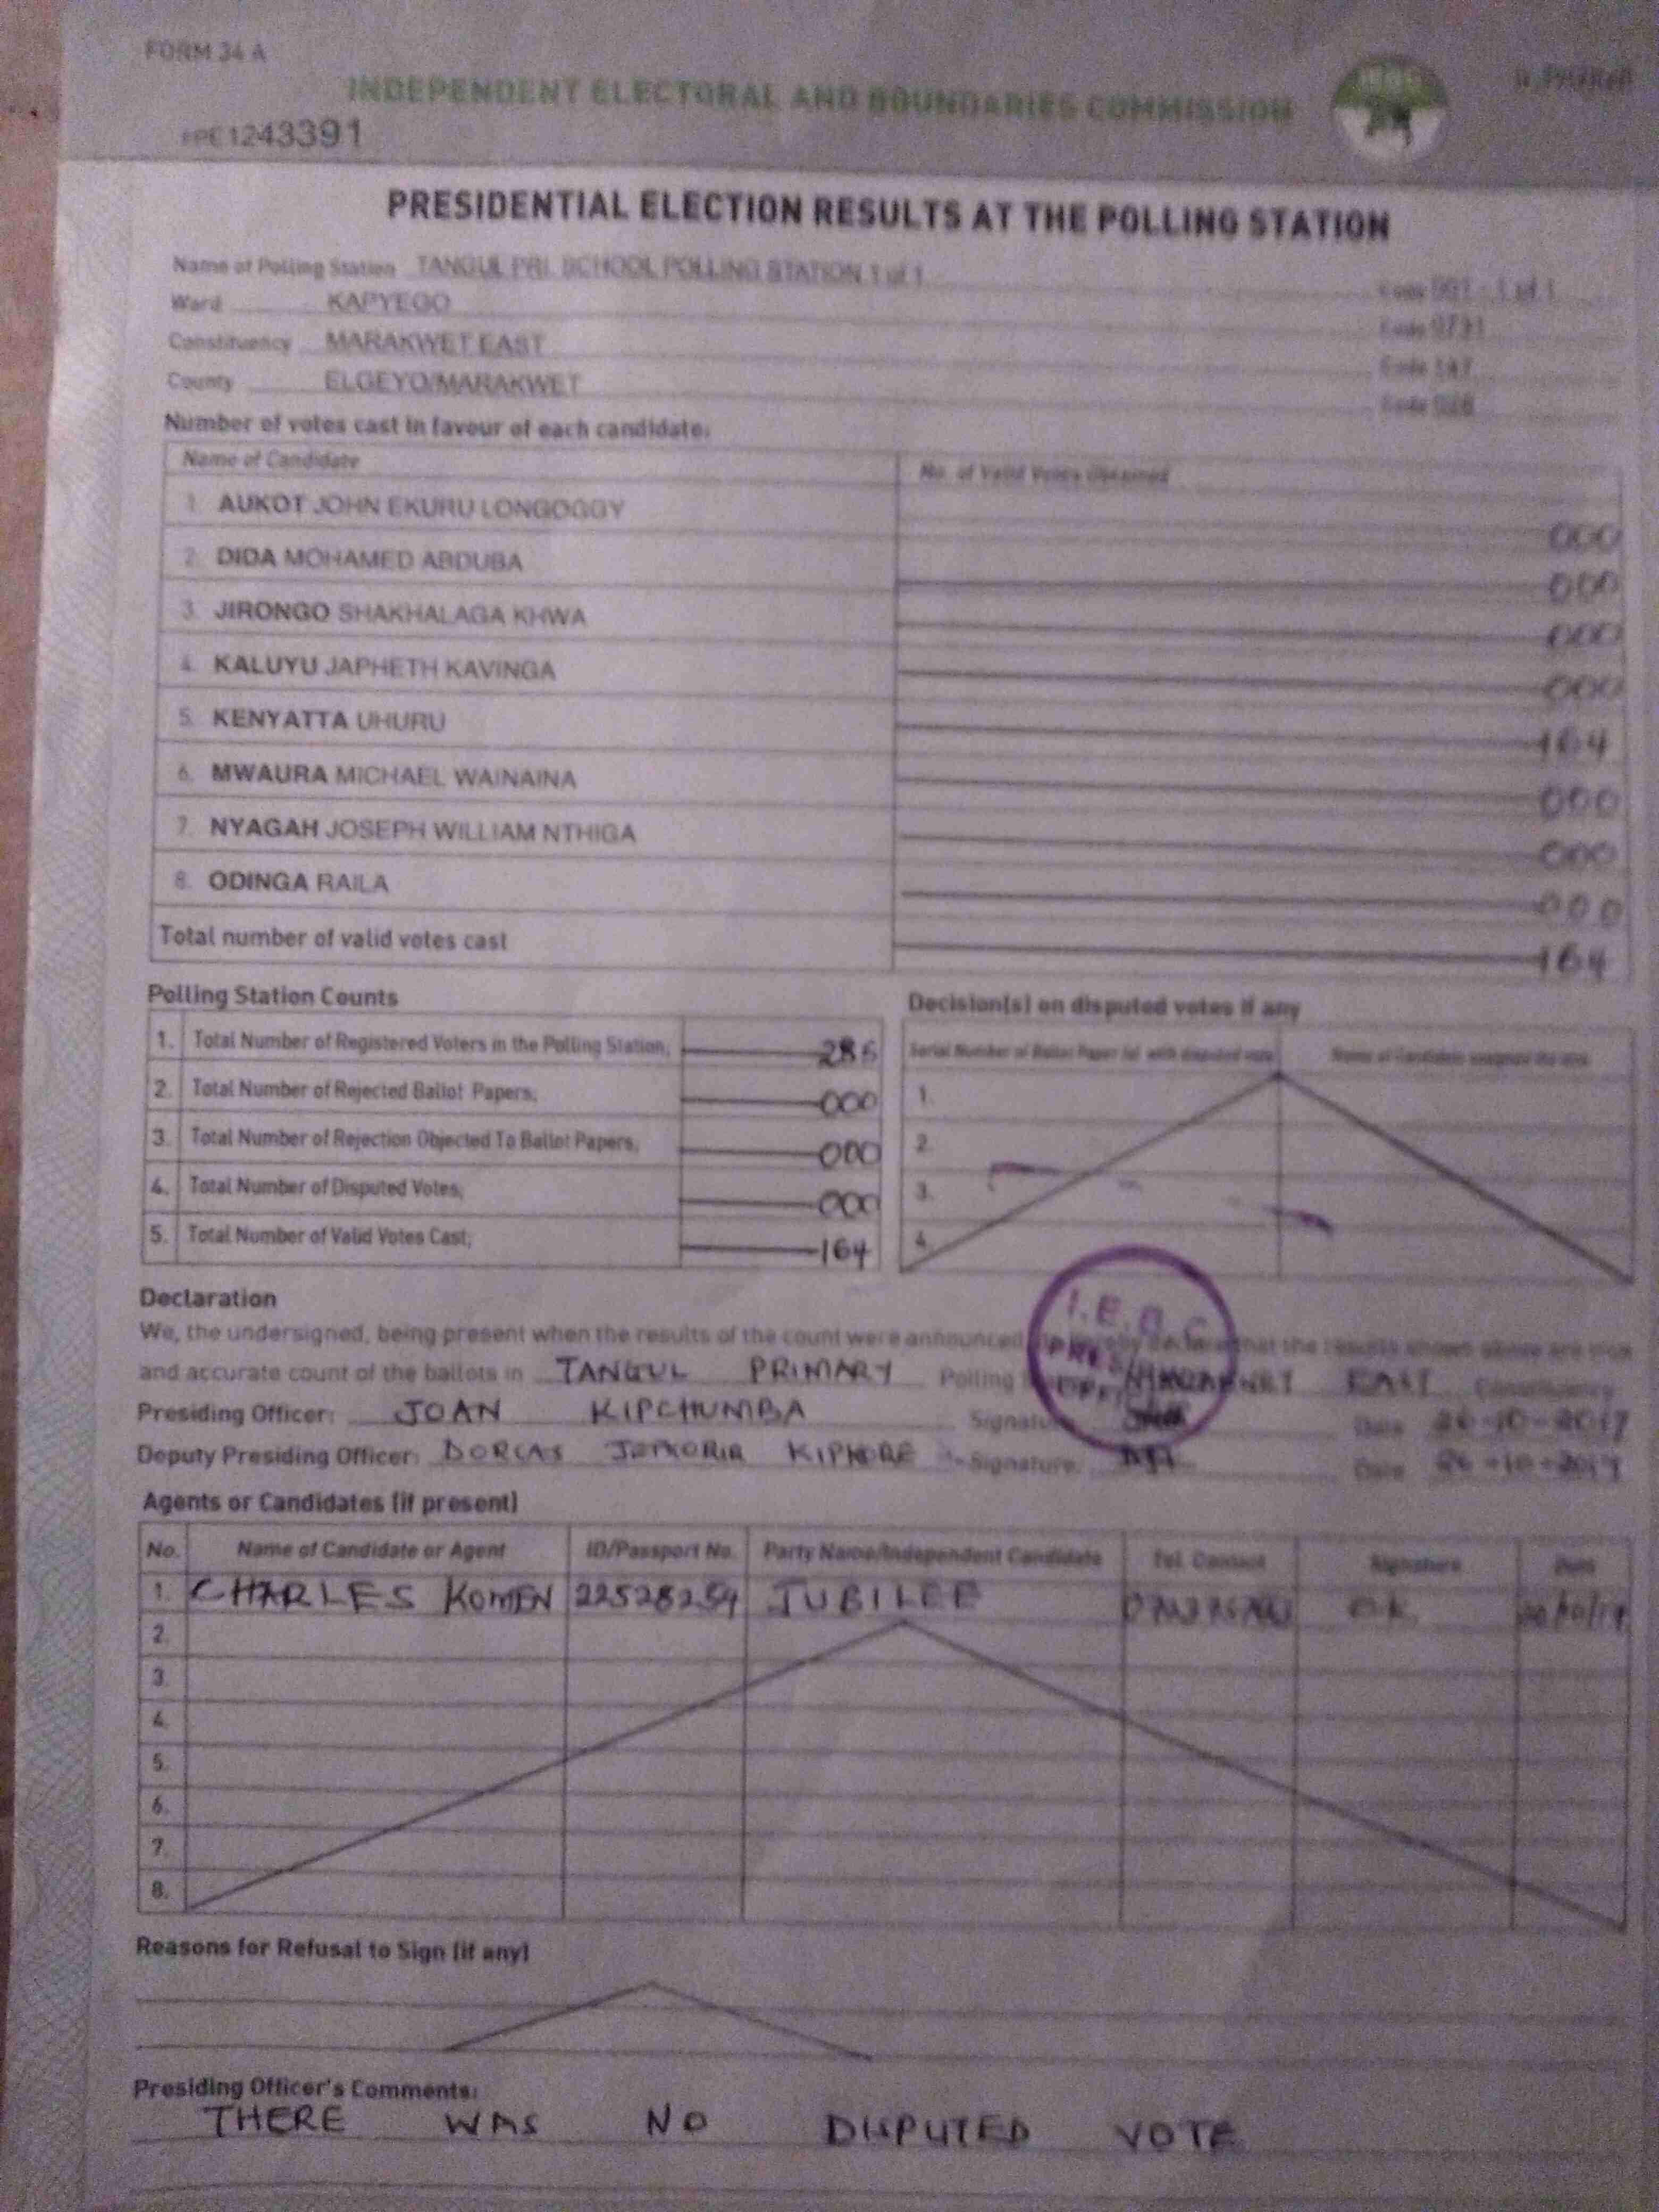 FORM 34 A
INDEPENDENT ELECTORAL AND BOUNDARIES COMMISSION
1243391
PRESIDENTIAL ELECTION RESULTS AT THE POLLING STATION
Name of Polling Station TANGUL PRI. SCHOOL POLLING STATION 1 of 1 Code 1 of 1
Ward KAPYEGO Code
Constituency MARAKWET EAST Code 147
County ELGEYO/MARAKWET Code 028
Number of votes cast in favour of each candidate:
Name of Candidate No. of Valid Votes Obtained
1. AUKOT JOHN EKURU LONGOGGY 000
2. DIDA MOHAMED ABDUBA 000
3. JIRONGO SHAKHALAGA KHWA 000
4. KALUYU JAPHETH KAVINGA 000
5. KENYATTA UHURU 164
6. MWAURA MICHAEL WAINAINA 000
7. NYAGAH JOSEPH WILLIAM NTHIGA 000
8. ODINGA RAILA 000
Total number of valid votes cast 164
Polling Station Counts
1. Total Number of Registered Voters in the Polling Station;
2. Total Number of Rejected Ballot Papers; 000
3. Total Number of Rejection Objected To Ballot Papers; 000
4. Total Number of Disputed Votes; 000
5. Total Number of Valid Votes Cast; 164
Decision(s) on disputed votes if any
Serial Number of Ballot Paper (s) with disputed vote Name of Candidate
1.
2.
3.
4.
Declaration
We, the undersigned, being present when the results of the count were announced, do hereby declare that the results shown above are true
and accurate count of the ballots in TANGUL PRIMARY Polling EAST Constituency
I.E.B.C
Presiding Officer: JOAN KIPCHUMBA Signature Date 26-10-2017
Deputy Presiding Officer: DORCAS KIPKORE Signature: Date 26-10-2017
Agents or Candidates (if present)
No. Name of Candidate or Agent ID/Passport No. Party Name/Independent Candidate Tel. Contact Signature Date
1. CHARLES KOMEN 22528254 JUBILEE
2.
3.
4.
5.
6.
7.
8.
Reasons for Refusal to Sign (if any)
Presiding Officer's Comments:
THERE WAS NO DISPUTED VOTE